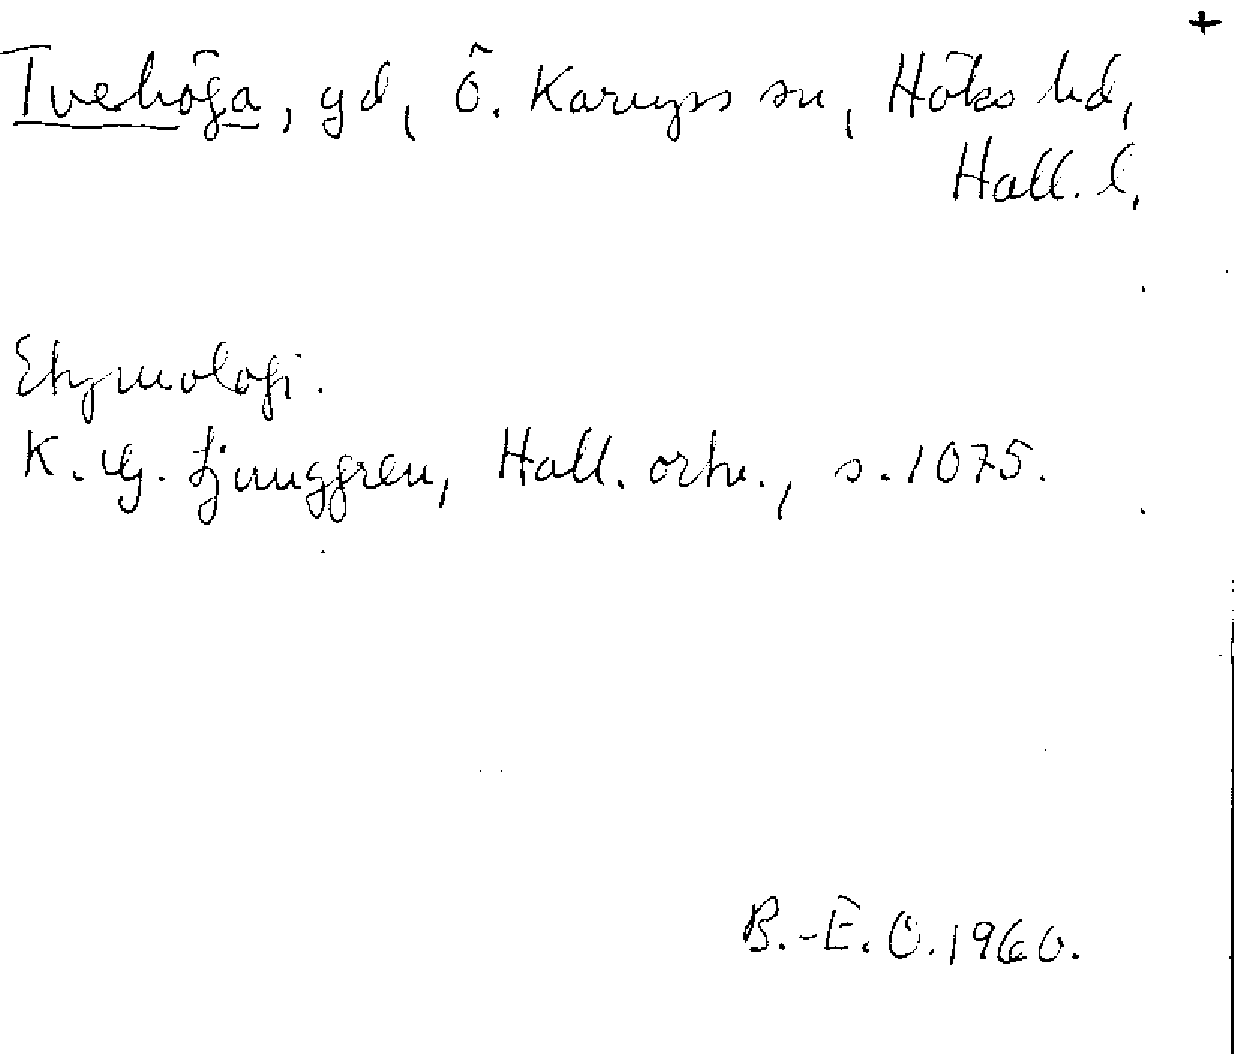 +
Tvehöga, gd, Ö. Karups sn, Höks hd,
Hall. l.
Etymologi.
K. G. Ljunggren, Hall. ortn., s. 1075.
B.-E. O. 1960.